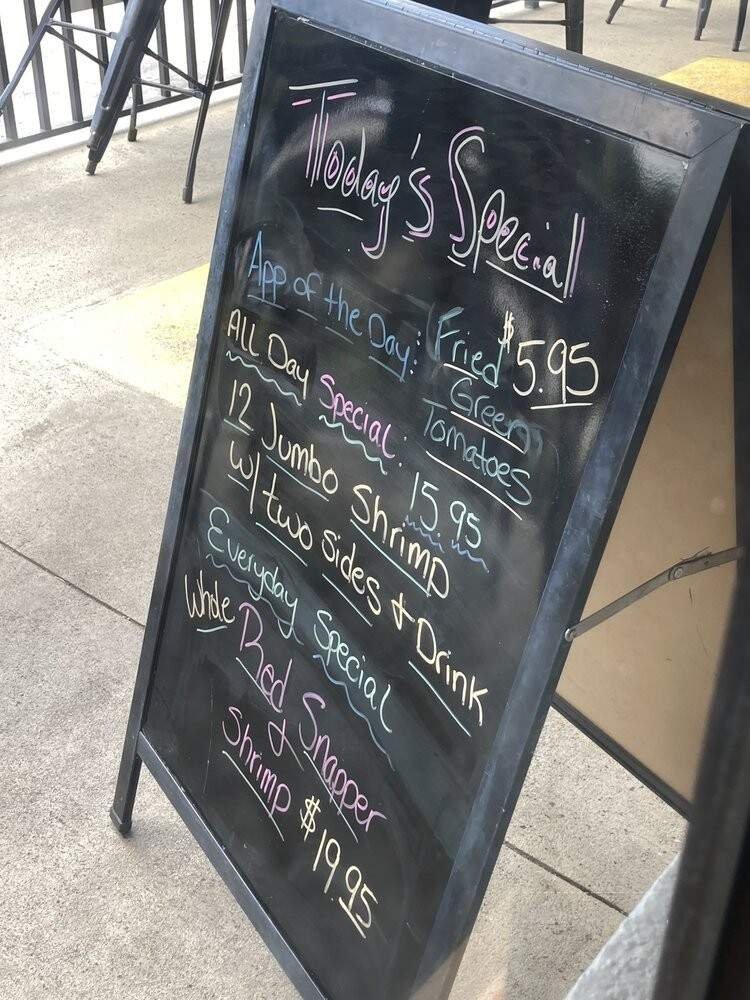 Today's Special
App. of the Day: Fried $5.95
Green
Tomatoes
ALL Day Special: 15.95
12 Jumbo Shrimp
w/ two sides + Drink
Everyday Special
Whole Red Snapper
&
Shrimp $19.95